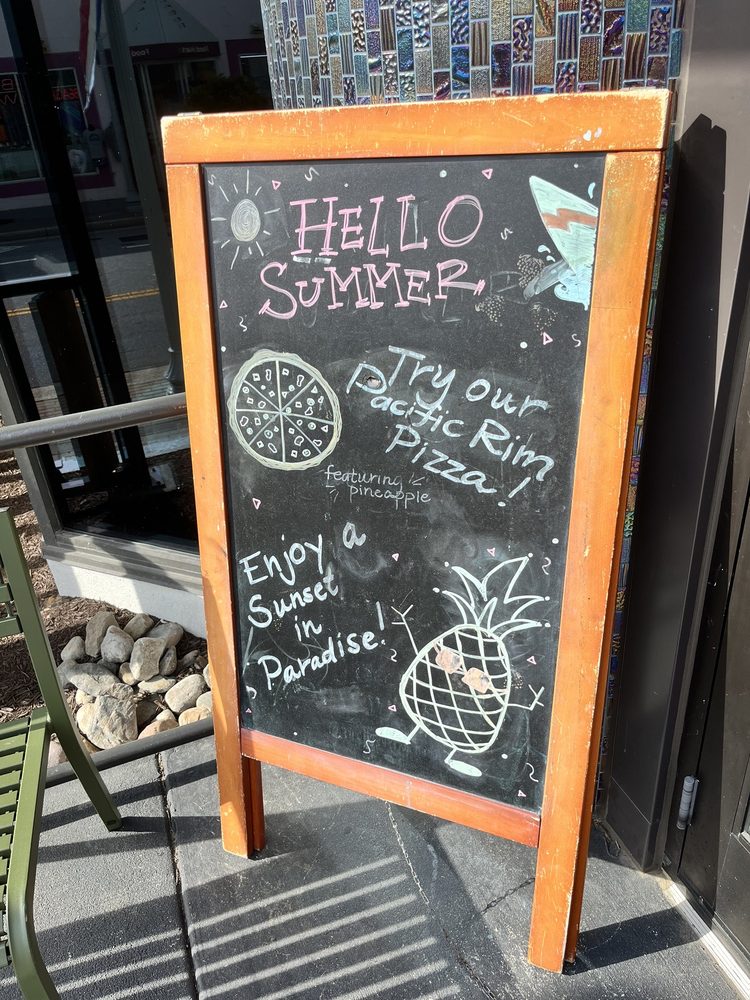 HELLO
SUMMER
Try our
Pacific Rim
Pizza!
featuring
pineapple
Enjoy a
Sunset
in
Paradise!